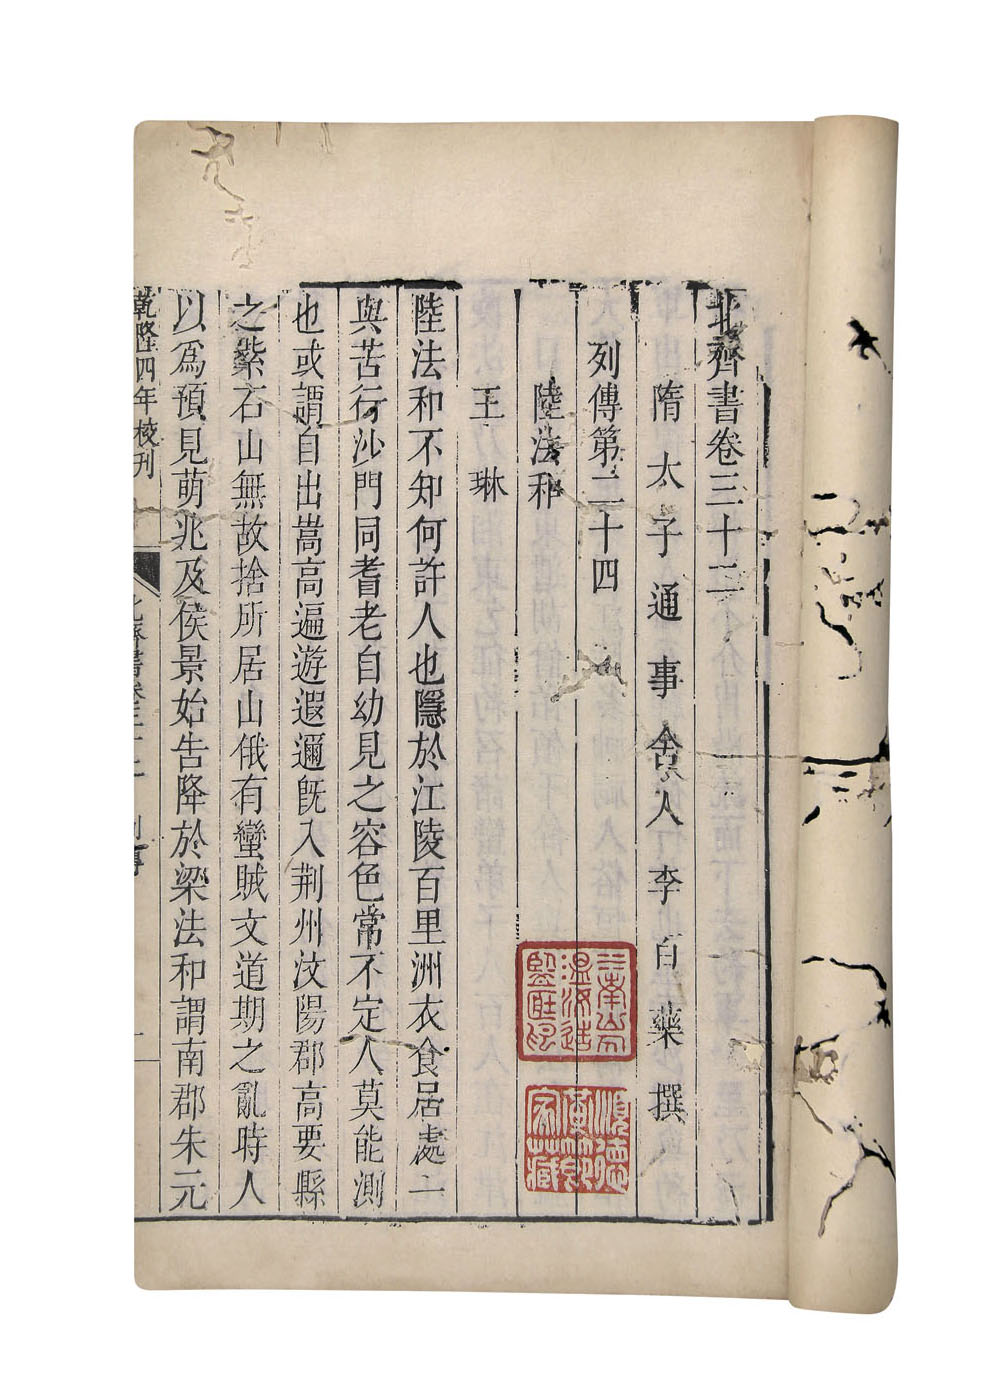 北齊書卷三十二
隋太子通事舍人李百藥撰
列傳第二十四
陸法和
王琳
陸法和不知何許人也隱於江陵百里洲衣食居處一
與苦行沙門同耆老自幼見之容色常不定人莫能測
也或謂自出嵩高遍遊遐邇旣入荆州汶陽郡高要縣
之紫石山無故捨所居山俄有蠻賊文道期之亂時人
以爲預見萌兆及侯景始告降於梁法和謂南郡朱元
乾隆四年校刊
北齊書卷三十二 列傳 一
順德
家藏